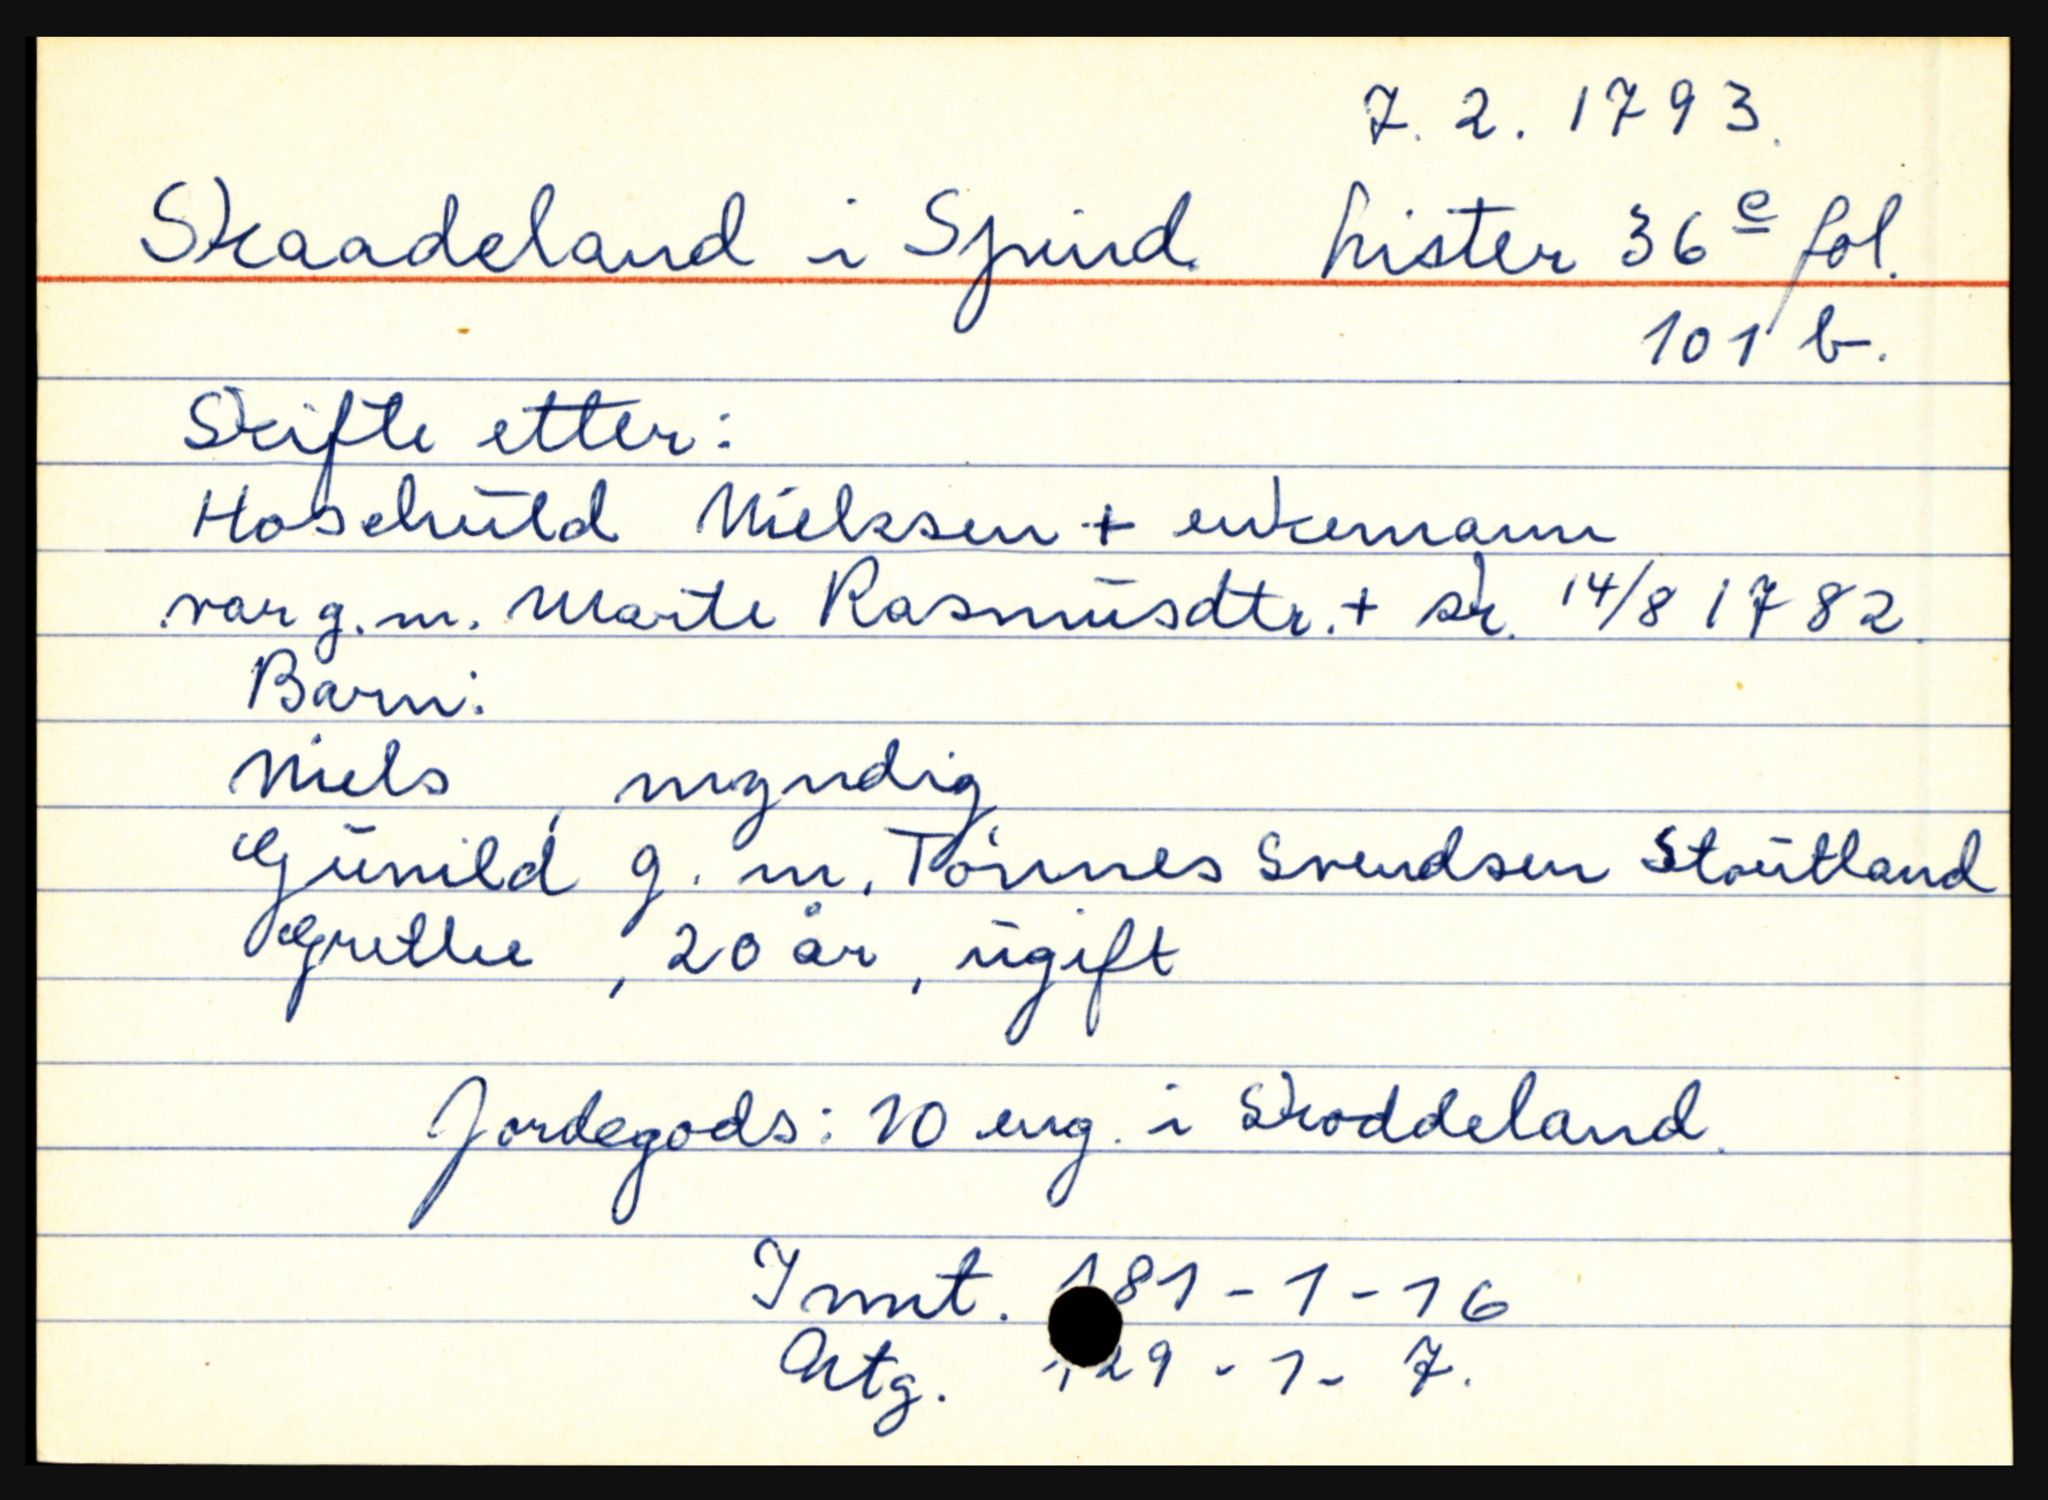 7. 2. 1793.
Skaadeland i Spind. Lister 36 e fol.
101 b.
Skifte etter:
Hoschuld Nielssen + enkemann
var g. m. Marte Rasmusdtr. + sk. 14/8 1782.
Barn:
Niels, myndig
Gunild g. m. Tønnes Svendsen Stoutland
Grethe, 20 år, ugift
Jordegods: 10 eng. i Skoddeland.
Innt. 181 - 1 - 16
Utg. 129 - 1 - 7.